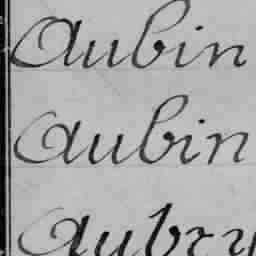 Aubin
Aubin
Aubry